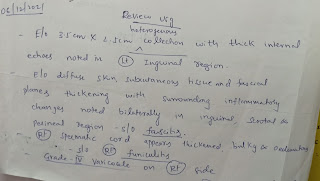 06/12/2021
Review USg
heterogenous
- E/o 3.5cm X 2.3cm collection with thick internal
echoes noted in Lt Inguinal region.
- E/o diffuse skin, subcutaneous tissue and fascial
planes thickening with surrounding inflammatory
changes noted bilaterally in inguinal, scrotal &
perineal region - S/o fascitis.
- Rt spermatic cord appears thickened, bulky & oedematous
- S/o Rt funiculitis
- Grade - IV Varicocele on Rt side